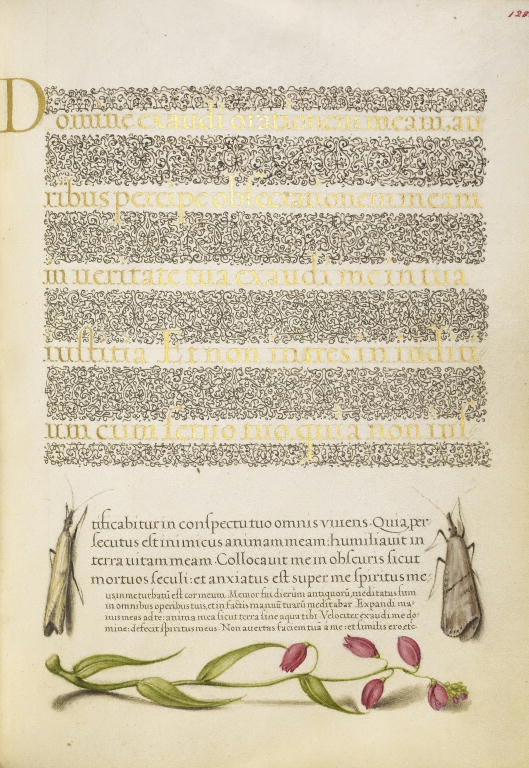 128
Domine exaudi orationem meam, au
ribus percipe obsecrationem meam
in ueritate tua exaudi me in tua
iustitia. Et non intres in iuditi
um cum seruo tuo, quia non ius
tificabitur in conspectu tuo omnis viuens. Quia per
secutus est inimicus animam meam: humiliauit in
terra uitam meam. Collocauit me in obscuris sicut
mortuos seculi: et anxiatus est super me spiritus me
us in me turbatũ est cor meum. Memor fui dierum antiquorũ, meditatus sum
in omnibus operibus tuis, et in factis manuũ tuarũ meditabar. Expandi ma-
nus meas ad te: anima mea sicut terra sine aqua tibi. Velociter exaudi me do-
mine: defecit spiritus meus. Non auertas faciem tuã a me: et similis ero etc.